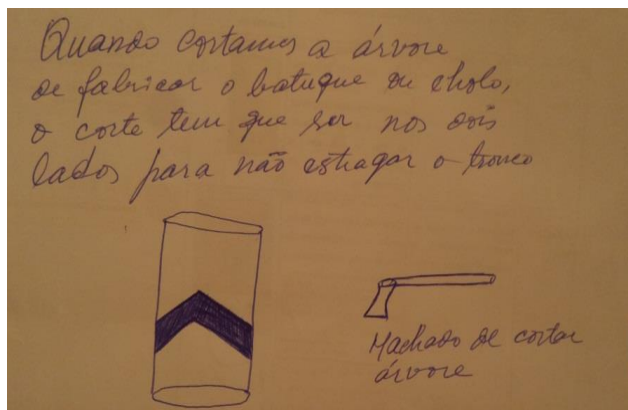 Quando cortamos a árvore
de fabricar o batuque ou cholo,
o corte tem que ser nos dois
lados para não estragar o tronco
Machado de cortar
árvore